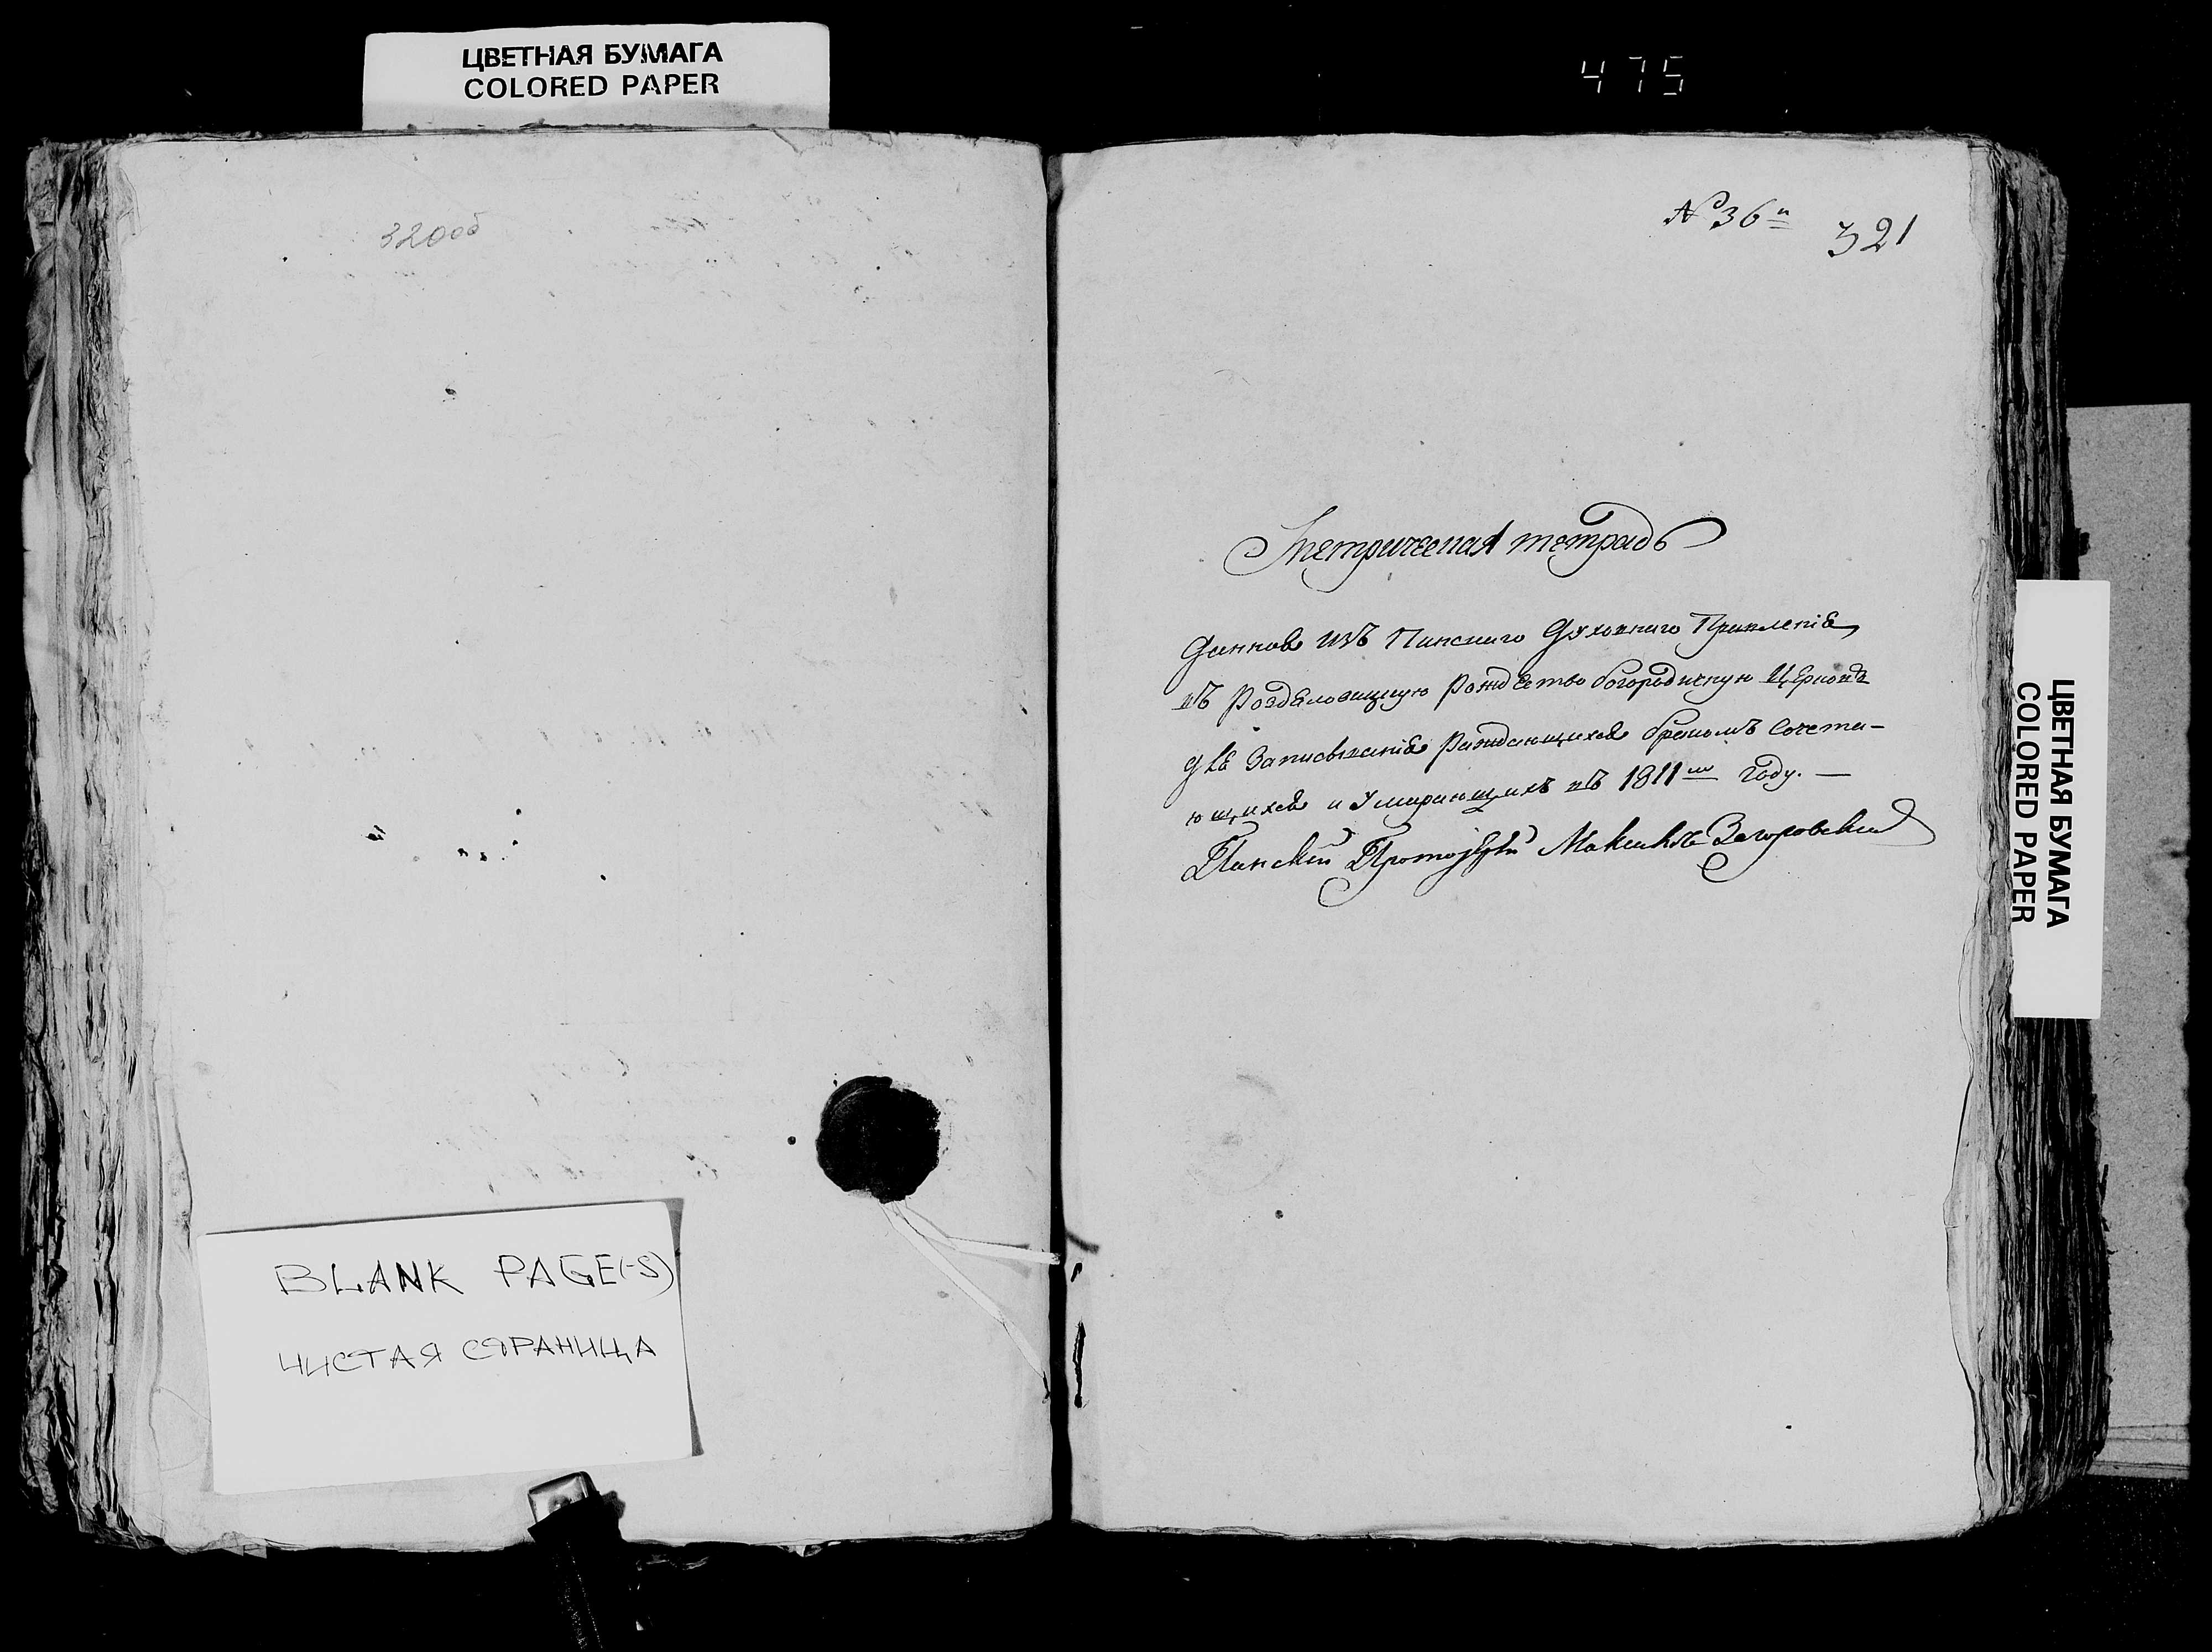 ЦВЕТНАЯ БУМАГА
COLORED PAPER
475
320об
BLANK PAGE(-S)
ЧИСТАЯ СТРАНИЦА
№ 36й 321
Метрическая тетрадь
Данная изъ Пинскаго Духовнаго Правленія
въ Роздяловицкую Рождество богородичную Церковь
для Записыванія Раждающихся бракомъ Сочета-
ющихся и Умирающихъ въ 1811м году. —
Пинскій Протоіерей Максимъ Загоровскій
ЦВЕТНАЯ БУМАГА
COLORED PAPER